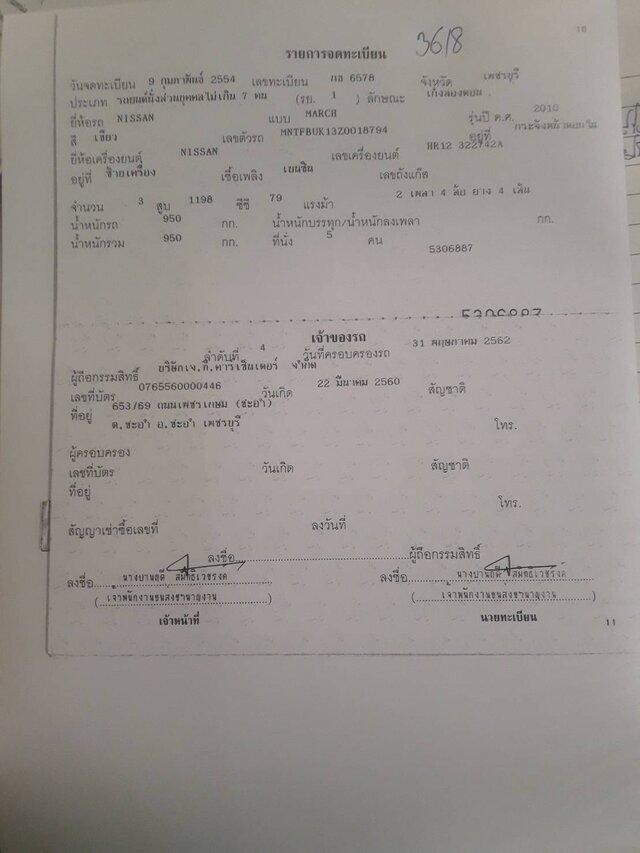 10
รายการจดทะเบียน 3618
วันจดทะเบียน 9 กุมภาพันธ์ 2554 เลขทะเบียน กธ 6578 จังหวัด เพชรบุรี
ประเภท รถยนต์นั่งส่วนบุคคลไม่เกิน 7 คน (รย. 1 ) ลักษณะ เก๋งสองตอน
ยี่ห้อรถ NISSAN แบบ MARCH รุ่นปี ค.ศ. 2010
สี เขียว เลขตัวรถ MNTFBUK13Z0018794 อยู่ที่
ยี่ห้อเครื่องยนต์ NISSAN เลขเครื่องยนต์ HR12 322742A
อยู่ที่ ซ้ายเครื่อง เชื้อเพลิง เบนซิน เลขถังแก๊ส
จำนวน 3 สูบ 1198 ซีซี 79 แรงม้า 2 เพลา 4 ล้อ ยาง 4 เส้น
น้ำหนักรถ 950 กก. น้ำหนักบรรทุก/น้ำหนักลงเพลา กก.
น้ำหนักรวม 950 กก. ที่นั่ง 5 คน
5306887
5306887
เจ้าของรถ
ลำดับที่ 4 วันที่ครอบครองรถ 31 พฤษภาคม 2562
ผู้ถือกรรมสิทธิ์ บริษัทเจ.ที.คาร์เซ็นเตอร์ จำกัด
เลขที่บัตร 0765560000446 วันเกิด 22 มีนาคม 2560 สัญชาติ
ที่อยู่ 653/69 ถนนเพชรเกษม (ชะอำ)
ต.ชะอำ อ.ชะอำ เพชรบุรี โทร.
ผู้ครอบครอง
เลขที่บัตร วันเกิด สัญชาติ
ที่อยู่
โทร.
สัญญาเช่าซื้อเลขที่ ลงวันที่
ลงชื่อ ผู้ถือกรรมสิทธิ์
ลงชื่อ ลงชื่อ
(เจ้าพนักงานขนส่งชำนาญงาน) (เจ้าพนักงานขนส่งชำนาญงาน)
เจ้าหน้าที่ นายทะเบียน
11